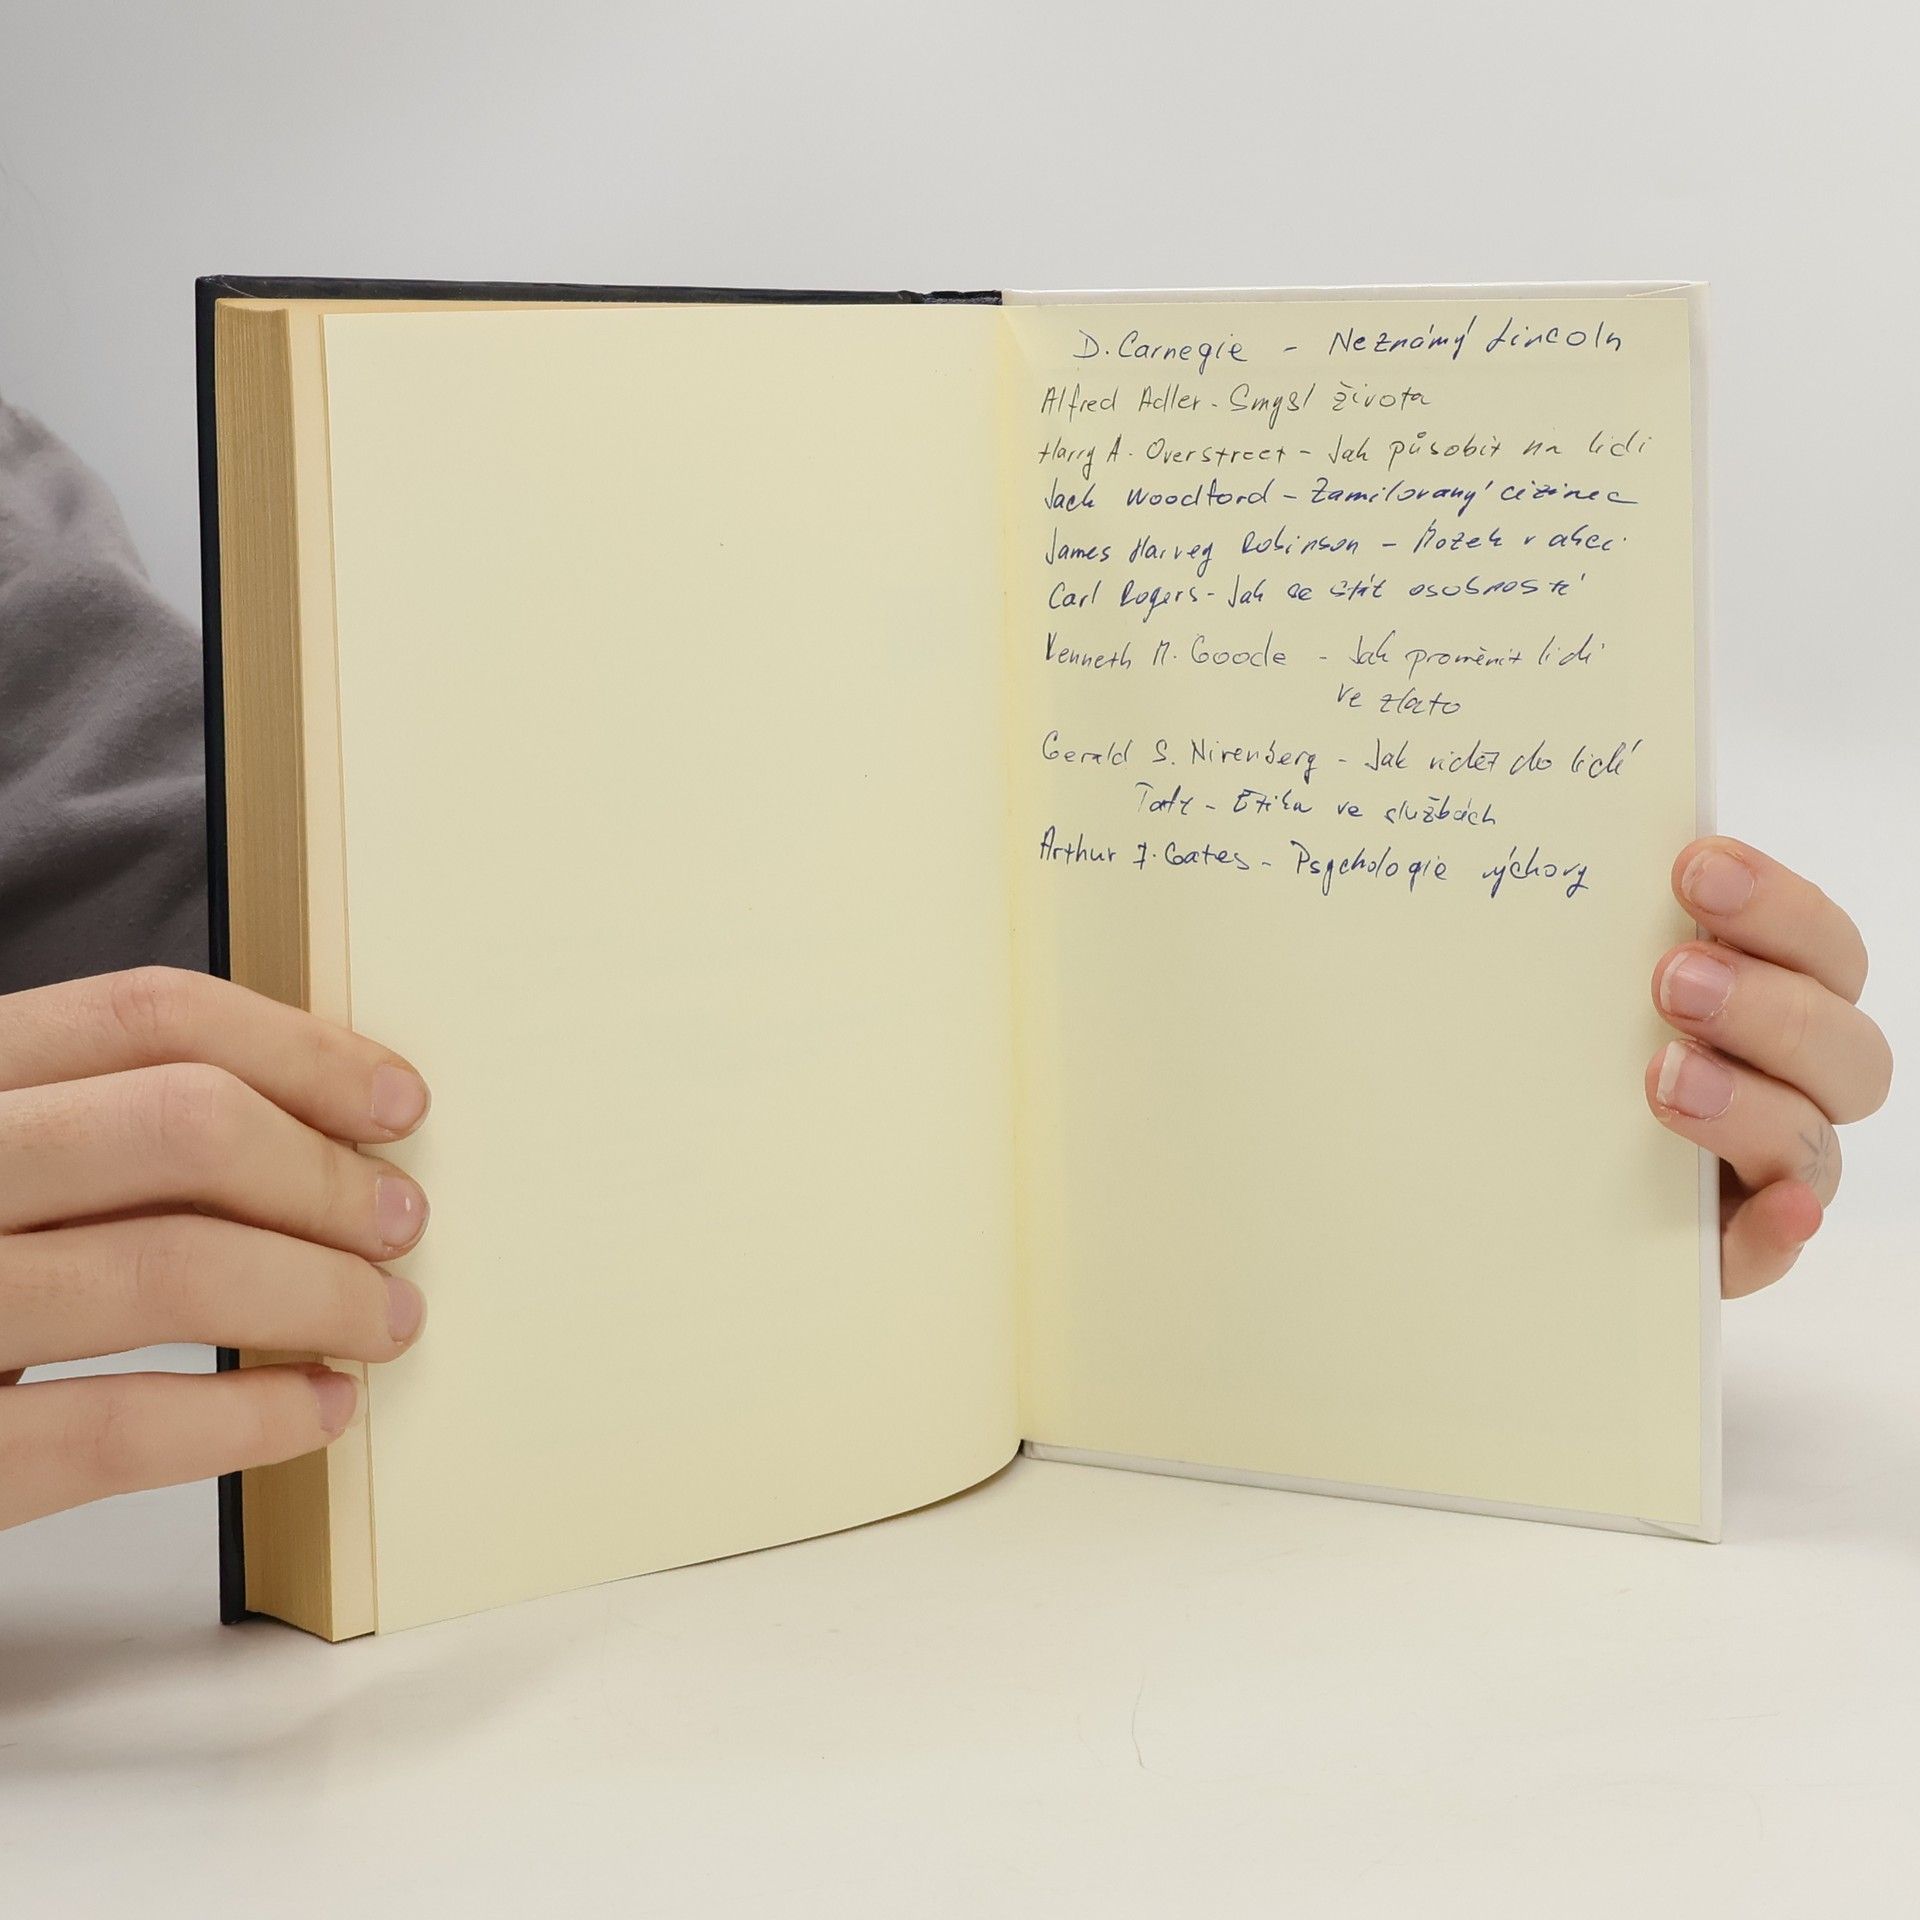 D. Carnegie - Neznámý Lincoln
Alfred Adler - Smysl života
Harry A. Overstreet - Jak působit na lidi
Jack Woodford - Zamilovaný cizinec
James Harvey Robinson - Mozek v akci
Carl Rogers - Jak se stát osobností
Kenneth M. Goode - Jak proměnit lidi
ve zlato
Gerald S. Nirenberg - Jak vidět do lidí
- Etika ve službách
Arthur J. Gates - Psychologie výchovy